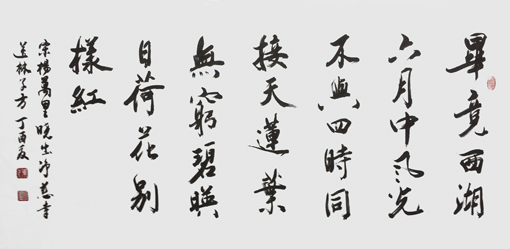 畢竟西湖
六月中風光
不與四時同
接天蓮葉
無窮碧暎
日荷花別
樣紅
宗楊萬里曉出净慈寺
送林子方 丁酉夏